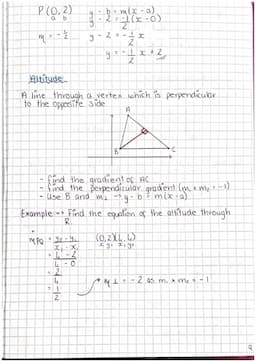 P(0, 2)   y - b = m(x - a)
a b   y - 2 = -1/2(x - 0)
m = -1/2   y - 2 = -1/2 x
y = -1/2 x + 2
Altitude
A line through a vertex which is perpendicular
to the opposite side
A
B   C
- find the gradient of AC
- find the perpendicular gradient (m₁ × m₂ = -1)
- Use B and m₂ → y - b = m(x - a)
Example → Find the equation of the altitude through
R
mPQ = y₂ - y₁ / x₂ - x₁   (0,2)(4,4)
x₁ y₁ x₂ y₂
= 4 - 2 / 4 - 0
= 2 / 4
= 1 / 2   → m⊥ = -2 as m₁ × m₂ = -1